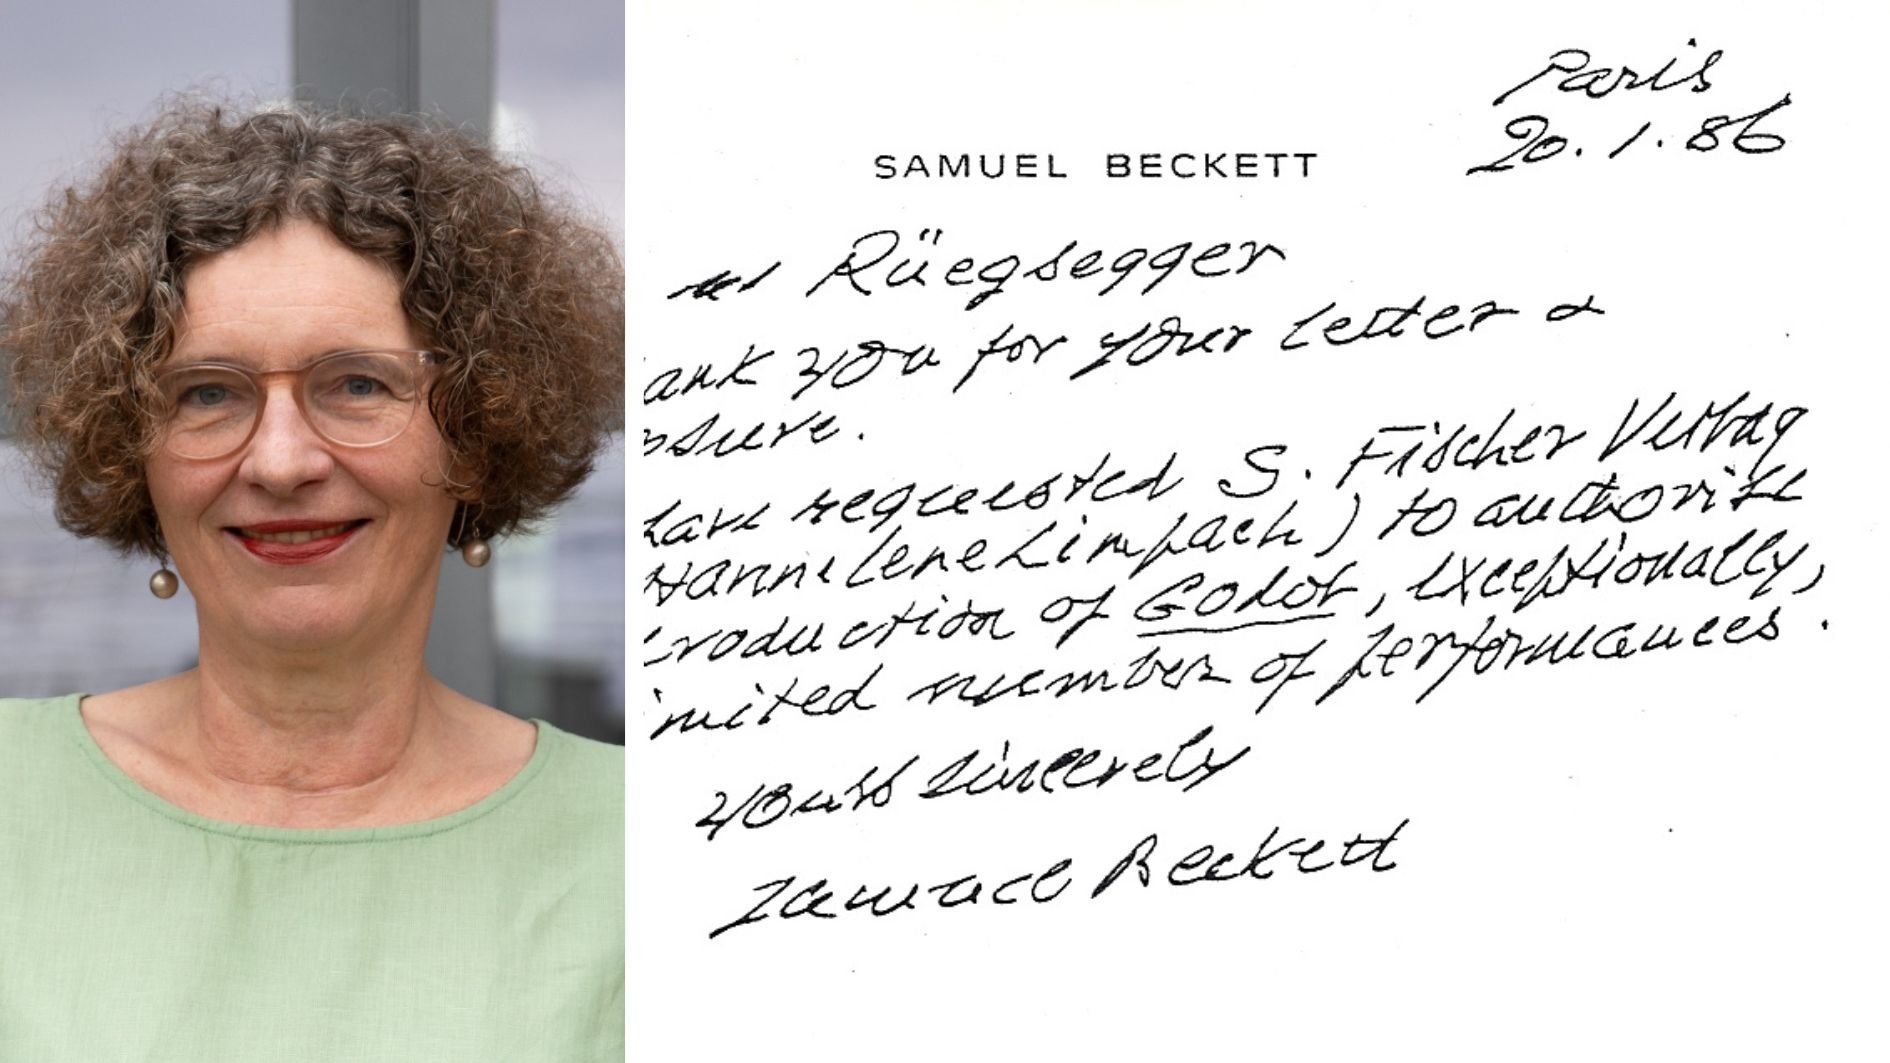 Paris
20.1.86
SAMUEL BECKETT
Rüegsegger
ank you for your letter &
osure.
have requested S. Fischer Verlag
Hannelene Limpach) to authorize
production of Godot, exceptionally,
imited number of performances.
Yours sincerely
Samuel Beckett